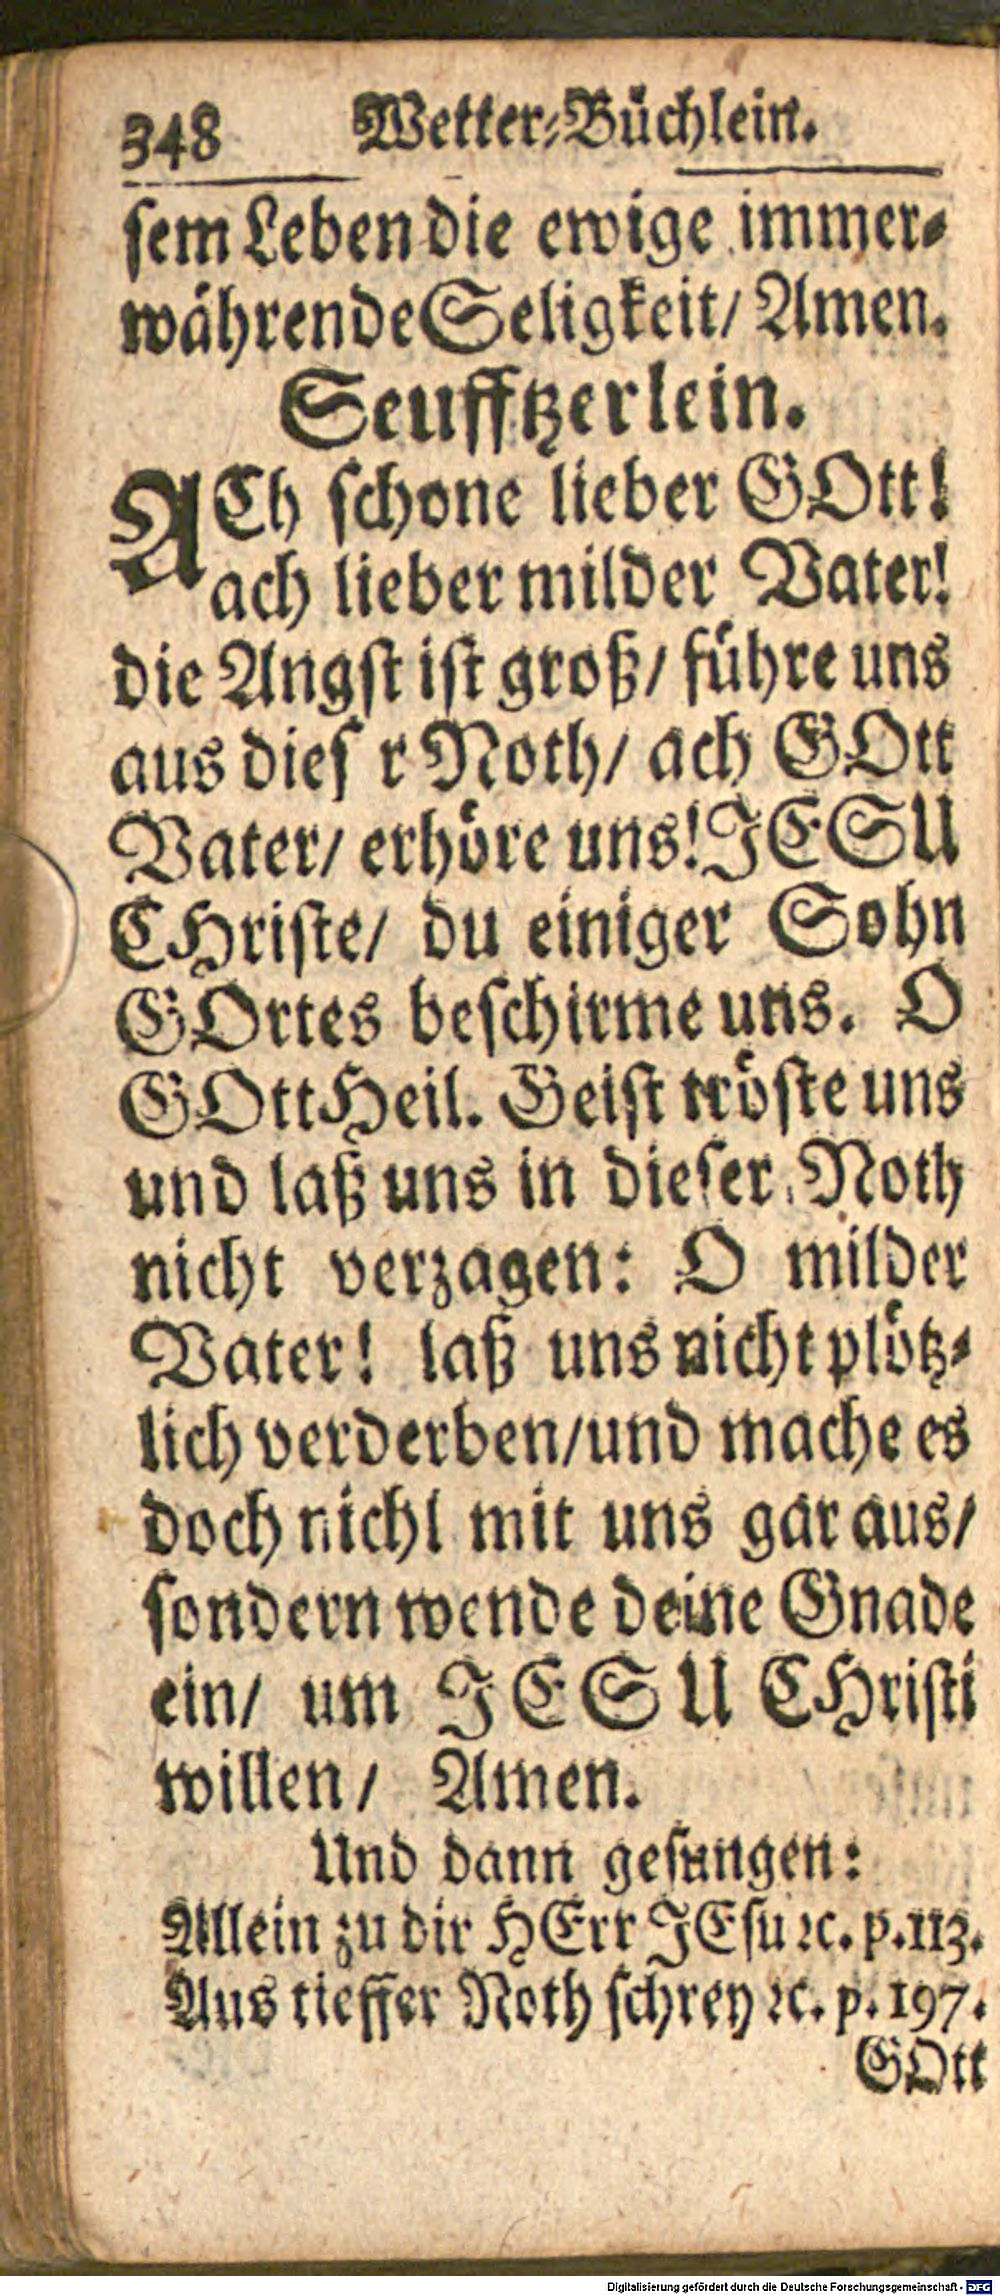 348 Wetter-Büchlein.
sem Leben die ewige immer-
währende Seligkeit/ Amen.
Seufftzerlein.
ACh schone lieber GOtt!
ach lieber milder Vater!
die Angst ist groß/ führe uns
aus dies r Noth/ ach GOtt
Vater/ erhöre uns! JESU
CHriste/ du einiger Sohn
GOrtes beschirme uns. O
GOtt Heil. Geist tröste uns
und laß uns in dieser Noth
nicht verzagen: O milder
Vater! laß uns nicht plötz-
lich verderben/und mache es
doch nichl mit uns gar aus/
sondern wende deine Gnade
ein/ um JESU CHristi
willen/ Amen.
Und dann gesungen:
Allein zu dir HErr JEsu ꝛc. p.113.
Aus tieffer Noth schrey ꝛc. p. 197.
GOtt
Digitalisierung gefördert durch die Deutsche Forschungsgemeinschaft - DFG